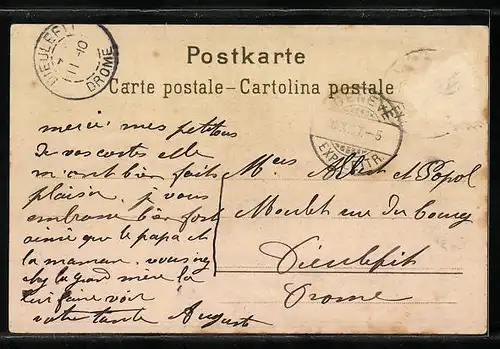 DIEULEFIT
11 -10
DROME
Postkarte
Carte postale – Cartolina postale
GENEVE
EXP. LETTR.
merci mes petitous
de vos cartes elle
m'ont bien faits
plaisir. je vous
embrasse bien fort
ainsi que le papa et
la maman. vous irez
chez la grand mère la
lui faire voir
votre tante August
Mers Albert et Popol
Moulet rue du bourg
Dieulefit
Drome